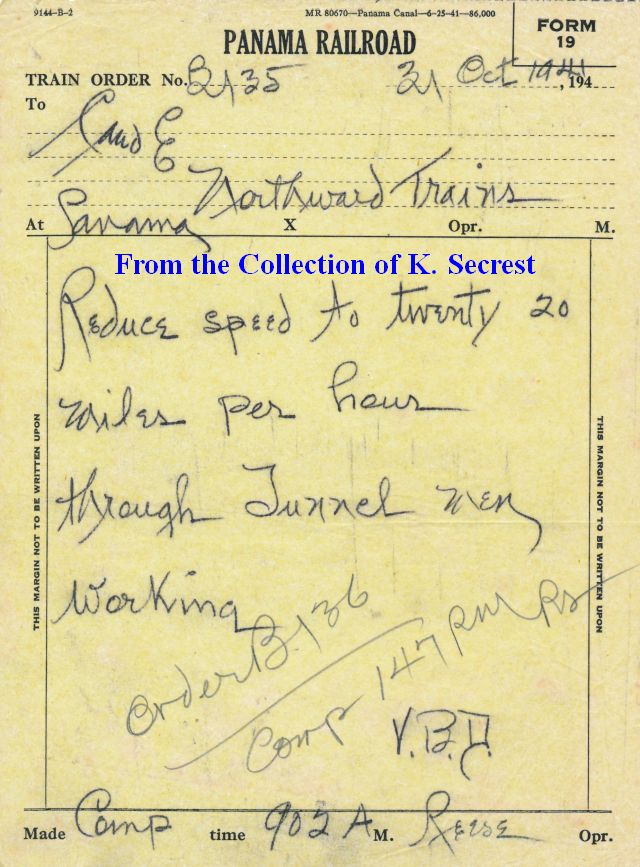 9144-B-2 MR 80670—Panama Canal—6-25-41—86,000
FORM
19
PANAMA RAILROAD
TRAIN ORDER No. B135 31 Oct 1941, 194
To
C and E
Northward Trains
At Panama X Opr. M.
From the Collection of K. Secrest
Reduce speed to twenty 20
miles per hour
through Tunnel men
working
Order B.136
Comp 147 PM RS
V.B.D.
THIS MARGIN NOT TO BE WRITTEN UPON
THIS MARGIN NOT TO BE WRITTEN UPON
Made Comp time 902 A M. Reese Opr.